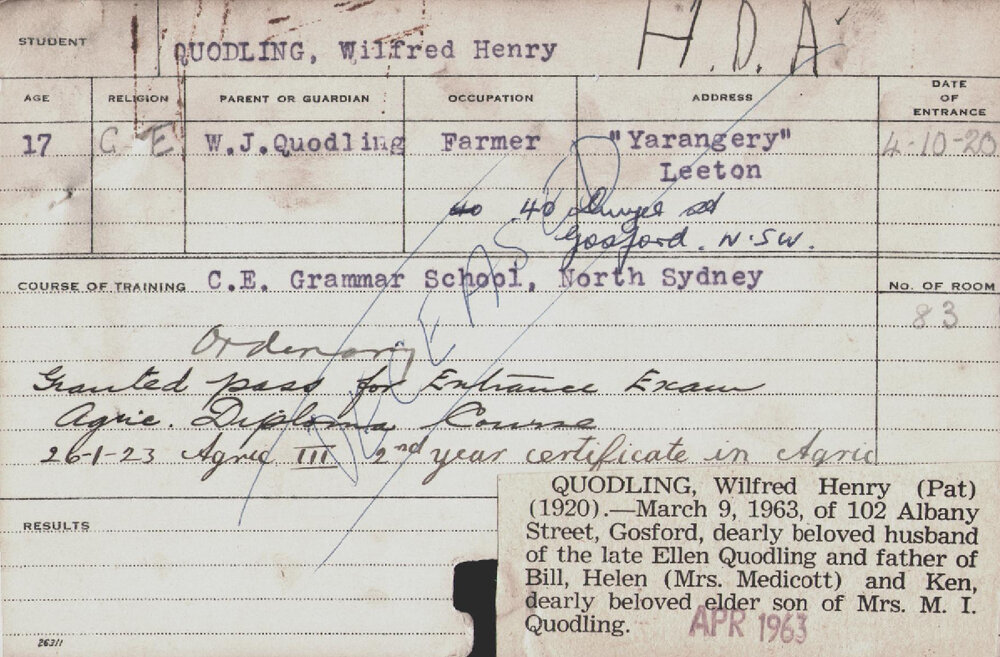 H.D.A.
STUDENT QUODLING, Wilfred Henry
AGE RELIGION PARENT OR GUARDIAN OCCUPATION ADDRESS DATE OF ENTRANCE
17 C E W.J.Quodling Farmer "Yarangery" 4-10-20
Leeton
40 40 Rd
Gosford. N.S.W.
DECEASED
COURSE OF TRAINING C.E. Grammar School, North Sydney No. OF ROOM
83
Ordenary
Granted pass for Entrance Exam
Agric. Diploma Course
26-1-23 Agric III 2nd year certificate in Agric
RESULTS
QUODLING, Wilfred Henry (Pat)
(1920).—March 9, 1963, of 102 Albany
Street, Gosford, dearly beloved husband
of the late Ellen Quodling and father of
Bill, Helen (Mrs. Medicott) and Ken,
dearly beloved elder son of Mrs. M. I.
Quodling.
APR 1963
263/1